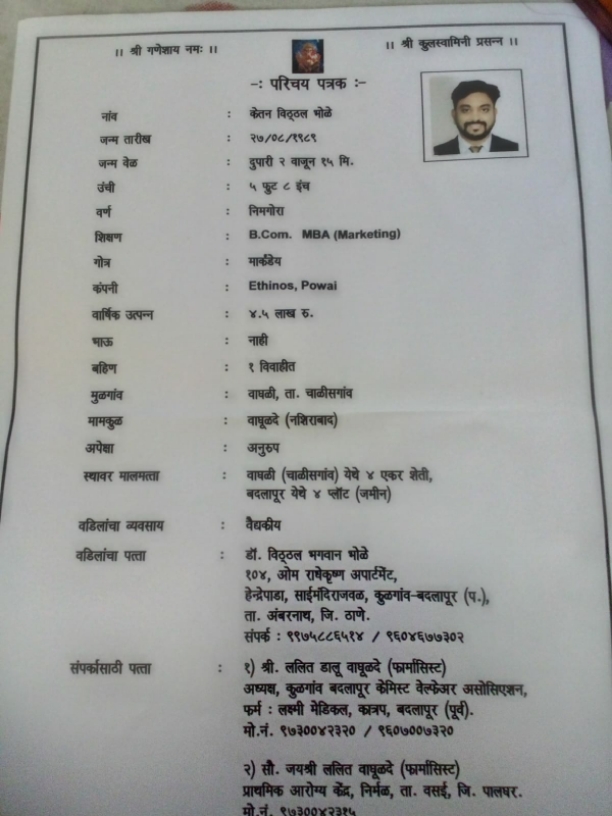 ।। श्री गणेशाय नमः ।।
।। श्री कुलस्वामिनी प्रसन्न ।।
-: परिचय पत्रक :-
नांव : केतन विठ्ठल भोळे
जन्म तारीख : २७/०८/१९८९
जन्म वेळ : दुपारी २ वाजून १५ मि.
उंची : ५ फुट ८ इंच
वर्ण : निमगोरा
शिक्षण : B.Com. MBA (Marketing)
गोत्र : मार्कंडेय
कंपनी : Ethinos, Powai
वार्षिक उत्पन्न : ४.५ लाख रु.
भाऊ : नाही
बहिण : १ विवाहीत
मुळगांव : वाघळी, ता. चाळीसगांव
मामकुळ : वाघूळदे (नशिराबाद)
अपेक्षा : अनुरुप
स्थावर मालमत्ता : वाघळी (चाळीसगांव) येथे ४ एकर शेती,
बदलापूर येथे ४ प्लॉट (जमीन)
वडिलांचा व्यवसाय : वैद्यकीय
वडिलांचा पत्ता : डॉ. विठ्ठल भगवान भोळे
१०४, ओम राधेकृष्ण अपार्टमेंट,
हेन्द्रेपाडा, साईमंदिराजवळ, कुळगांव-बदलापूर (प.),
ता. अंबरनाथ, जि. ठाणे.
संपर्क : ९९७५८८६५१४ / ९६०४६७७३०२
संपर्कासाठी पत्ता : १) श्री. ललित डालू वाघूळदे (फार्मासिस्ट)
अध्यक्ष, कुळगांव बदलापूर केमिस्ट वेल्फेअर असोसिएशन,
फर्म : लक्ष्मी मेडिकल, कात्रप, बदलापूर (पूर्व).
मो.नं. ९७३००४२३२० / ९६०७००७३२०
२) सौ. जयश्री ललित वाघूळदे (फार्मासिस्ट)
प्राथमिक आरोग्य केंद्र, निर्मळ, ता. वसई, जि. पालघर.
मो.नं. ९७३००४२३१५